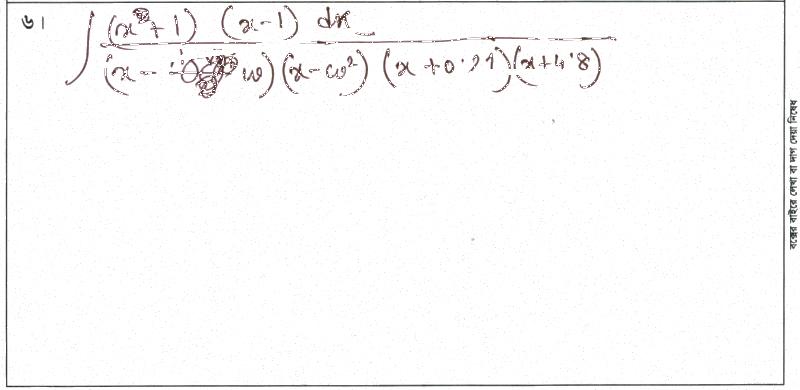 ৬। ∫ (x + 1) (x-1) dx
(x - ω) (x-ω²) (x +0.21)(x+4.8)
বক্সের বাইরে লেখা বা দাগ দেয়া নিষেধ